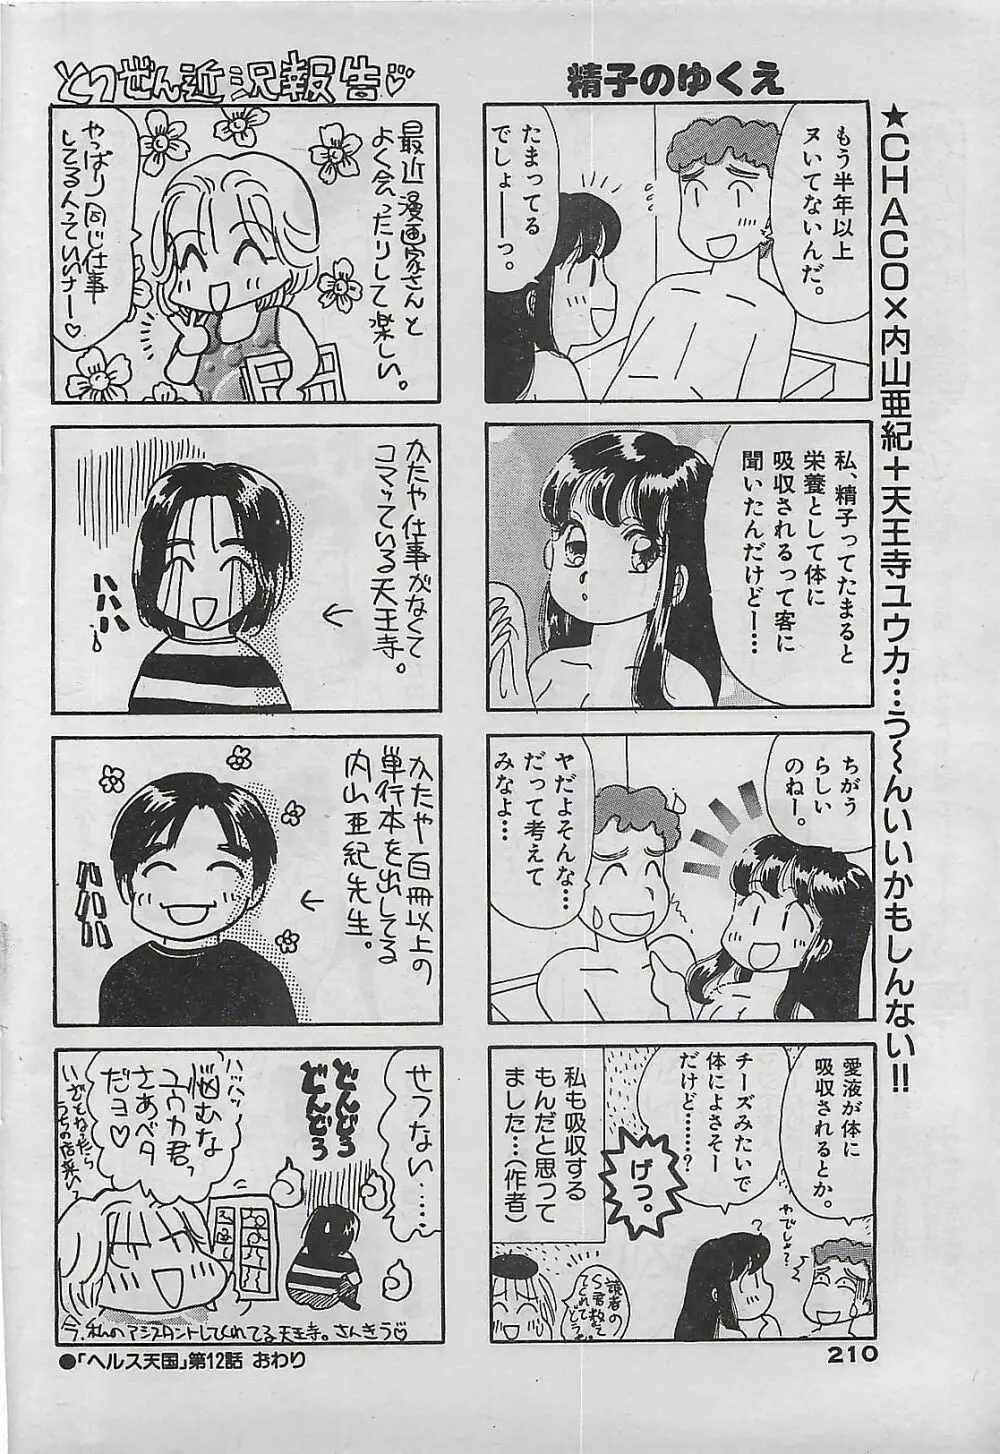 ★CHACO×内山亜紀＋天王寺ユウカ…う〜んいいかもしんない!!
精子のゆくえ
もう半年以上
ヌいてないんだ。
たまってる
でしょーーっ。
私、精子ってたまると
栄養として体に
吸収されるって客に
聞いたんだけどー…
ちがう
らしい
のねー。
ヤだよそんな…
だって考えて
みなよ…
愛液が体に
吸収されるとか。
チーズみたいで
体によさそー
だけど………？
やでしょ？
？
げっ。
私も吸収する
もんだと思って
ました…（作者）
読者の
とつぜん近況報告♡
最近漫画家さんと
よく会ったりして楽しい。
やっぱり同じ仕事
してる人っていいナー♡
かたや仕事がなくて
コマッている天王寺。
←
ハハハ
かたや百冊以上の
単行本を出してる
内山亜紀先生。
←
ハハハ
せつない……
どんどろ
どんどろ
ハハハッ
悩むな
ユウカ君っ
さあベタ
だヨ♡
いざとなったら
うちの店来いっ
今、私のアシスタントしてくれてる天王寺。さんきう♡
●「ヘルス天国」第12話 おわり
210